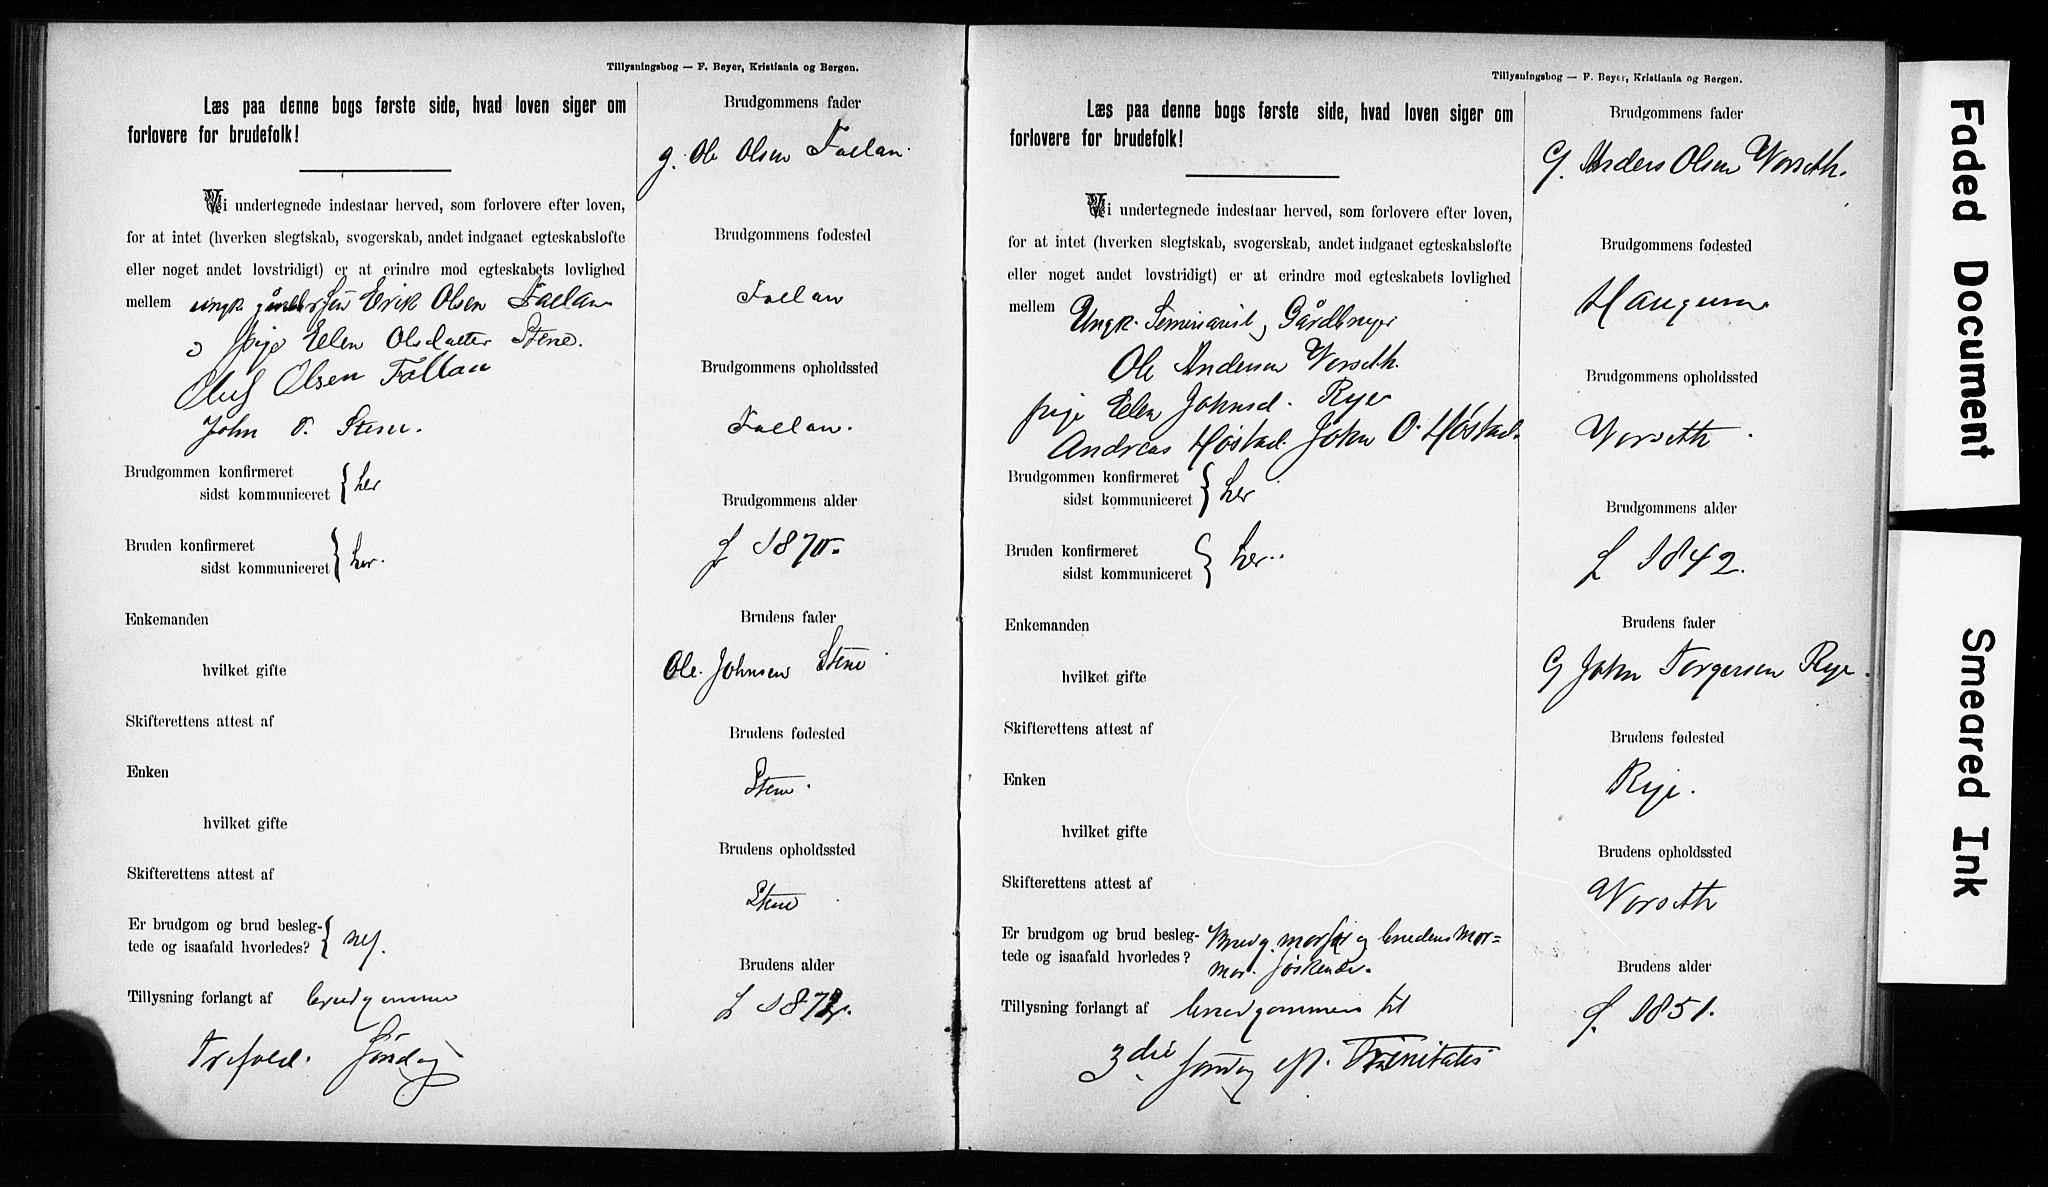 Tillysningsbog — F. Beyer, Kristiania og Bergen.
Læs paa denne bogs første side, hvad loven siger om
forlovere for brudefolk!
Vi undertegnede indestaar herved, som forlovere efter loven,
for at intet (hverken slegtskab, svogerskab, andet indgaaet egteskabsløfte
eller noget andet lovstridigt) er at erindre mod egteskabets lovlighed
mellem ungk. Erik Olsen Faelan
pige Elen Olsdatter Stene.
Oluf Olsen Fallan
John O. Stene.
Brudgommen konfirmeret
sidst kommuniceret } her
Bruden konfirmeret
sidst kommuniceret } her.
Enkemanden
hvilket gifte
Skifterettens attest af
Enken
hvilket gifte
Skifterettens attest af
Er brudgom og brud besleg-
tede og isaafald hvorledes? { nej.
Tillysning forlangt af brudgommen
Trefold. Søndag
Brudgommens fader
g. Ole Olsen Faelan.
Brudgommens fødested
Faelan
Brudgommens opholdssted
Faelan.
Brudgommens alder
f. 1870.
Brudens fader
Ole Johnsen Stene
Brudens fødested
Stene.
Brudens opholdssted
Stene
Brudens alder
f. 1872.
Tillysningsbog — F. Beyer, Kristiania og Bergen.
Læs paa denne bogs første side, hvad loven siger om
forlovere for brudefolk!
Vi undertegnede indestaar herved, som forlovere efter loven,
for at intet (hverken slegtskab, svogerskab, andet indgaaet egteskabsløfte
eller noget andet lovstridigt) er at erindre mod egteskabets lovlighed
mellem Ungk. Seminarist og Gårdbruger
Ole Andersen Vorseth.
pige Elen Johnsd. Rye
Andreas Høstad. John O. Høstad.
Brudgommen konfirmeret
sidst kommuniceret } her
Bruden konfirmeret
sidst kommuniceret } her.
Enkemanden
hvilket gifte
Skifterettens attest af
Enken
hvilket gifte
Skifterettens attest af
Er brudgom og brud besleg- Brudg. morfar og brudens mor=
tede og isaafald hvorledes? mor. søskende.
Tillysning forlangt af brudgommen til
3die søndag eft. Trinitatis
Brudgommens fader
G. Anders Olsen Vorseth.
Brudgommens fødested
Haugum
Brudgommens opholdssted
Vorseth
Brudgommens alder
f. 1842.
Brudens fader
G John Torgersen Rye.
Brudens fødested
Rye.
Brudens opholdssted
Vorseth
Brudens alder
f. 1851.
Faded Document
Smeared Ink